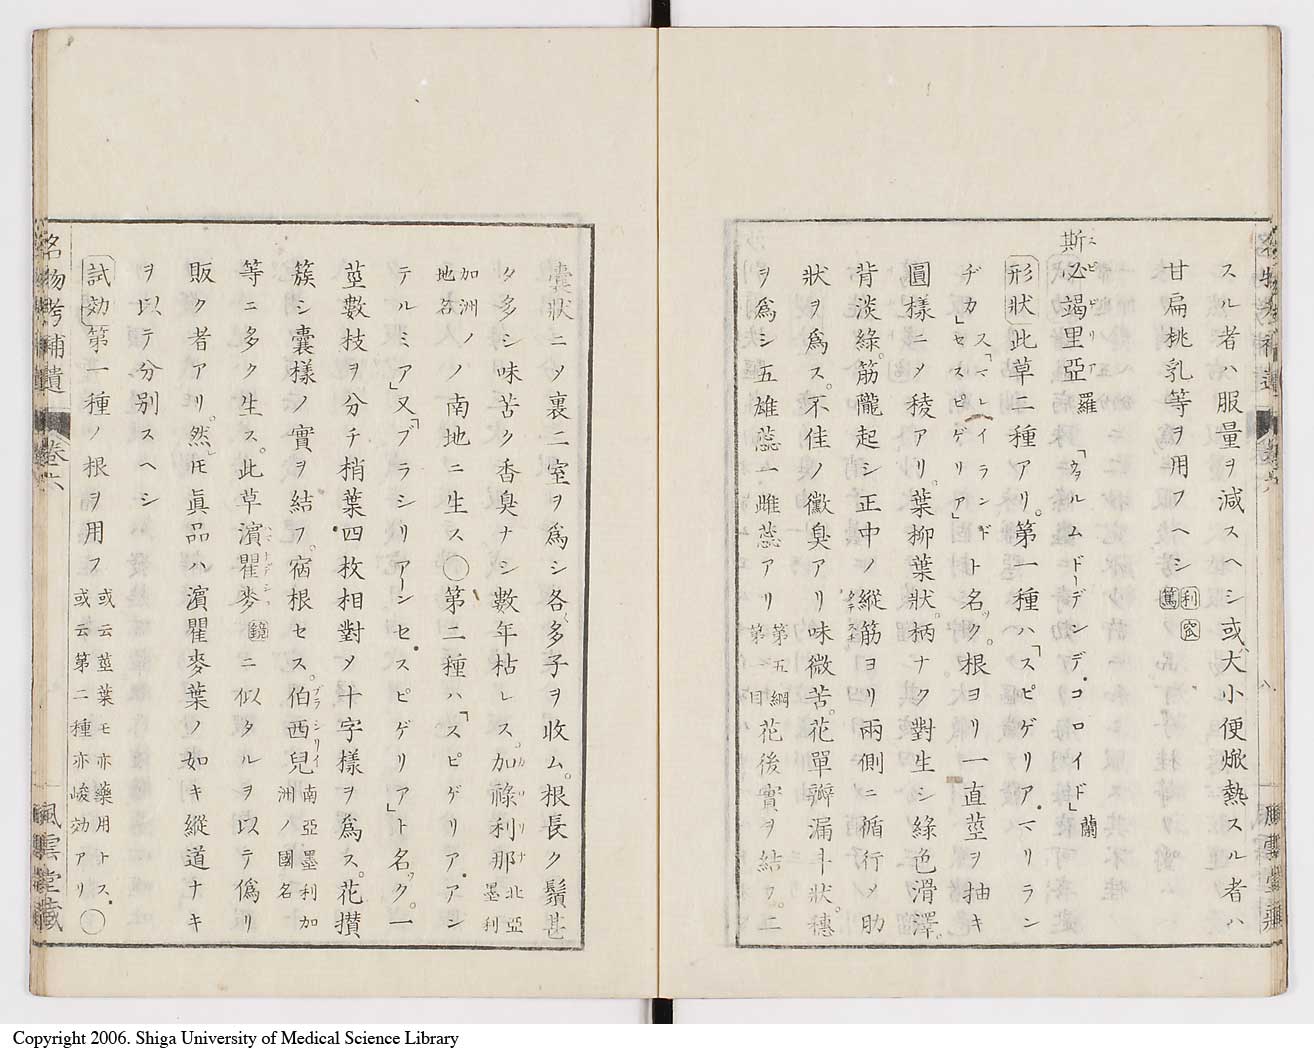 スル者ハ服量ヲ減スヘシ或ハ大小便焮熱スル者ハ
甘扁桃乳等ヲ用フヘシ 利 篤
斯必竭里亞 羅「ウァルムドーデンデ.コロイド」蘭
スピビリア
形状 此草二種アリ。第一種ハ「スピゲリア.マリラン
ヂカ」セスピゲリア」ト名ック。根ヨリ一直莖ヲ抽キ
ス「マレイランド
圓樣ニメ稜アリ。葉柳葉狀。柄ナク對生シ綠色滑澤。
背淡綠。筋隴起シ正中ノ縱筋ヨリ兩側ニ循行メ助
狀ヲ爲ス。不佳ノ黴臭アリ味微苦。花單瓣漏斗狀。穗
ヲ爲シ五雄蕊一雌蕊アリ 第五綱第一目 花後實ヲ結フ。二
囊狀ニメ裏二室ヲ爲シ各多子ヲ收ム。根長ク鬚甚
ク多シ味苦ク香臭ナシ數年枯レス。加祿利那 北亞墨利
カロリナ
加洲ノ地名 ノ南地ニ生ス○第二種ハ「スピゲリア.アン
テルミア」又「ブラシリアーンセ.スピゲリア」ト名ック。一
莖數枝ヲ分チ梢葉四枚相對メ十字樣ヲ爲ス。花攅
簇シ囊樣ノ實ヲ結フ。宿根セス。伯西兒 南亞墨利加洲ノ國名
ブラシリイ
等ニ多ク生ス。此草濱瞿麥 鏡 ニ似タルヲ以テ僞リ
販ク者アリ。然𪜈眞品ハ濱瞿麥葉ノ如キ縱道ナキ
ヲ以テ分別スヘシ
試効 第一種ノ根ヲ用フ 或云莖葉モ亦藥用トス.或云第二種亦峻効アリ ○
名物考補遺 卷六 風雲堂藏
Copyright 2006. Shiga University of Medical Science Library